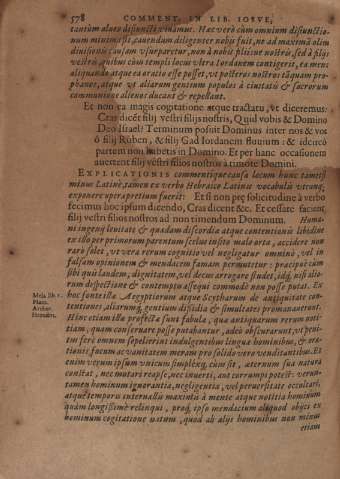 578 COMMENT. IN LIB. IOSVE,
tantùm alueo disiuncti viuamus. Hæc verò cùm omnium disiunctio-
num minima sit, cauendum diligenter nobis fuit, ne ad maxima olim
diuisionis causam vsurparetur, non à nobis filiisue nostris, sed à filijs
vestris, quibus cùm templi locus vltra Iordanem contigerit, ea mens
aliquando atque ea oratio esse posset, vt posteros nostros tãquam pro-
phanos, atque vt aliarum gentium populos à ciuitatis & sacrorum
communione alienè ducant & repellant.
Et non ea magis cogitatione atque tractatu, vt diceremus:
Cras dicẽt filij vestri filijs nostris, Quid vobis & Domino
Deo Israel? Terminum posuit Dominus inter nos & vos
ô filij Rúben, & filij Gad Iordanem fluuium: & idcircò
partem non habetis in Domino. Et per hanc occasionem
auertent filij vestri filios nostros à timore Domini.
EXPLICATIONIS commentique causa locum hunc tametsi
minus Latinè, tamen ex verbo Hebraico Latinis vocabulis vtrunq;
exponere operæpretium fuerit: Et si non præ solicitudine à verbo
fecimus hoc ipsum dicendo, Cras dicent &c. Et cessare facient
filij vestri filios nostros ad non timendum Dominum. Huma-
ni ingenij leuitate & quadam discordia atque contentionis libidine
ex illo per primorum parentum scelus insito malo orta, accidere non
rarò solet, vt vera rerum cognitio vel negligatur omnino, vel in
falsam opinionem & mendacem famam permutetur: præcipuè cùm
sibi quis laudem, dignitatem, vel decus arrogare studet, idq́; nisi alio-
rum despectione & contemptu assequi commodè non posse putat. Ex
hoc fonte illa Aegyptiorum atque Scytharum de antiquitate con-
tentiones, aliarumq́; gentium dißidia & simultates promanarunt.
Mela lib. 1.
Plato.
Hinc etiam illa profecta sunt fabula, qua antiquarum rerum noti-
tiam, quam conseruare posse putabantur, adeò obscurarunt, vt peni-
tus ferè omnem sepelierint indulgentibus lingua hominibus, & ora-
tionis fucum ac vanitatem meram pro solido vero venditantibus. Et
enim verum ipsum vnicum simplexq́; cùm sit, æternum sua natura
constat, nec mutari reapse, nec inuerti, aut corrumpi potest: verun-
tamen hominum ignorantia, negligentia, vel peruersitate occultari,
atque temporis interuallis maximis à mente atque notitia hominum
quàm longißimè relinqui, proq́; ipso mendacium aliquod obijci ex
hominum cogitatione natum, quod ab alijs hominibus non minus
etiam